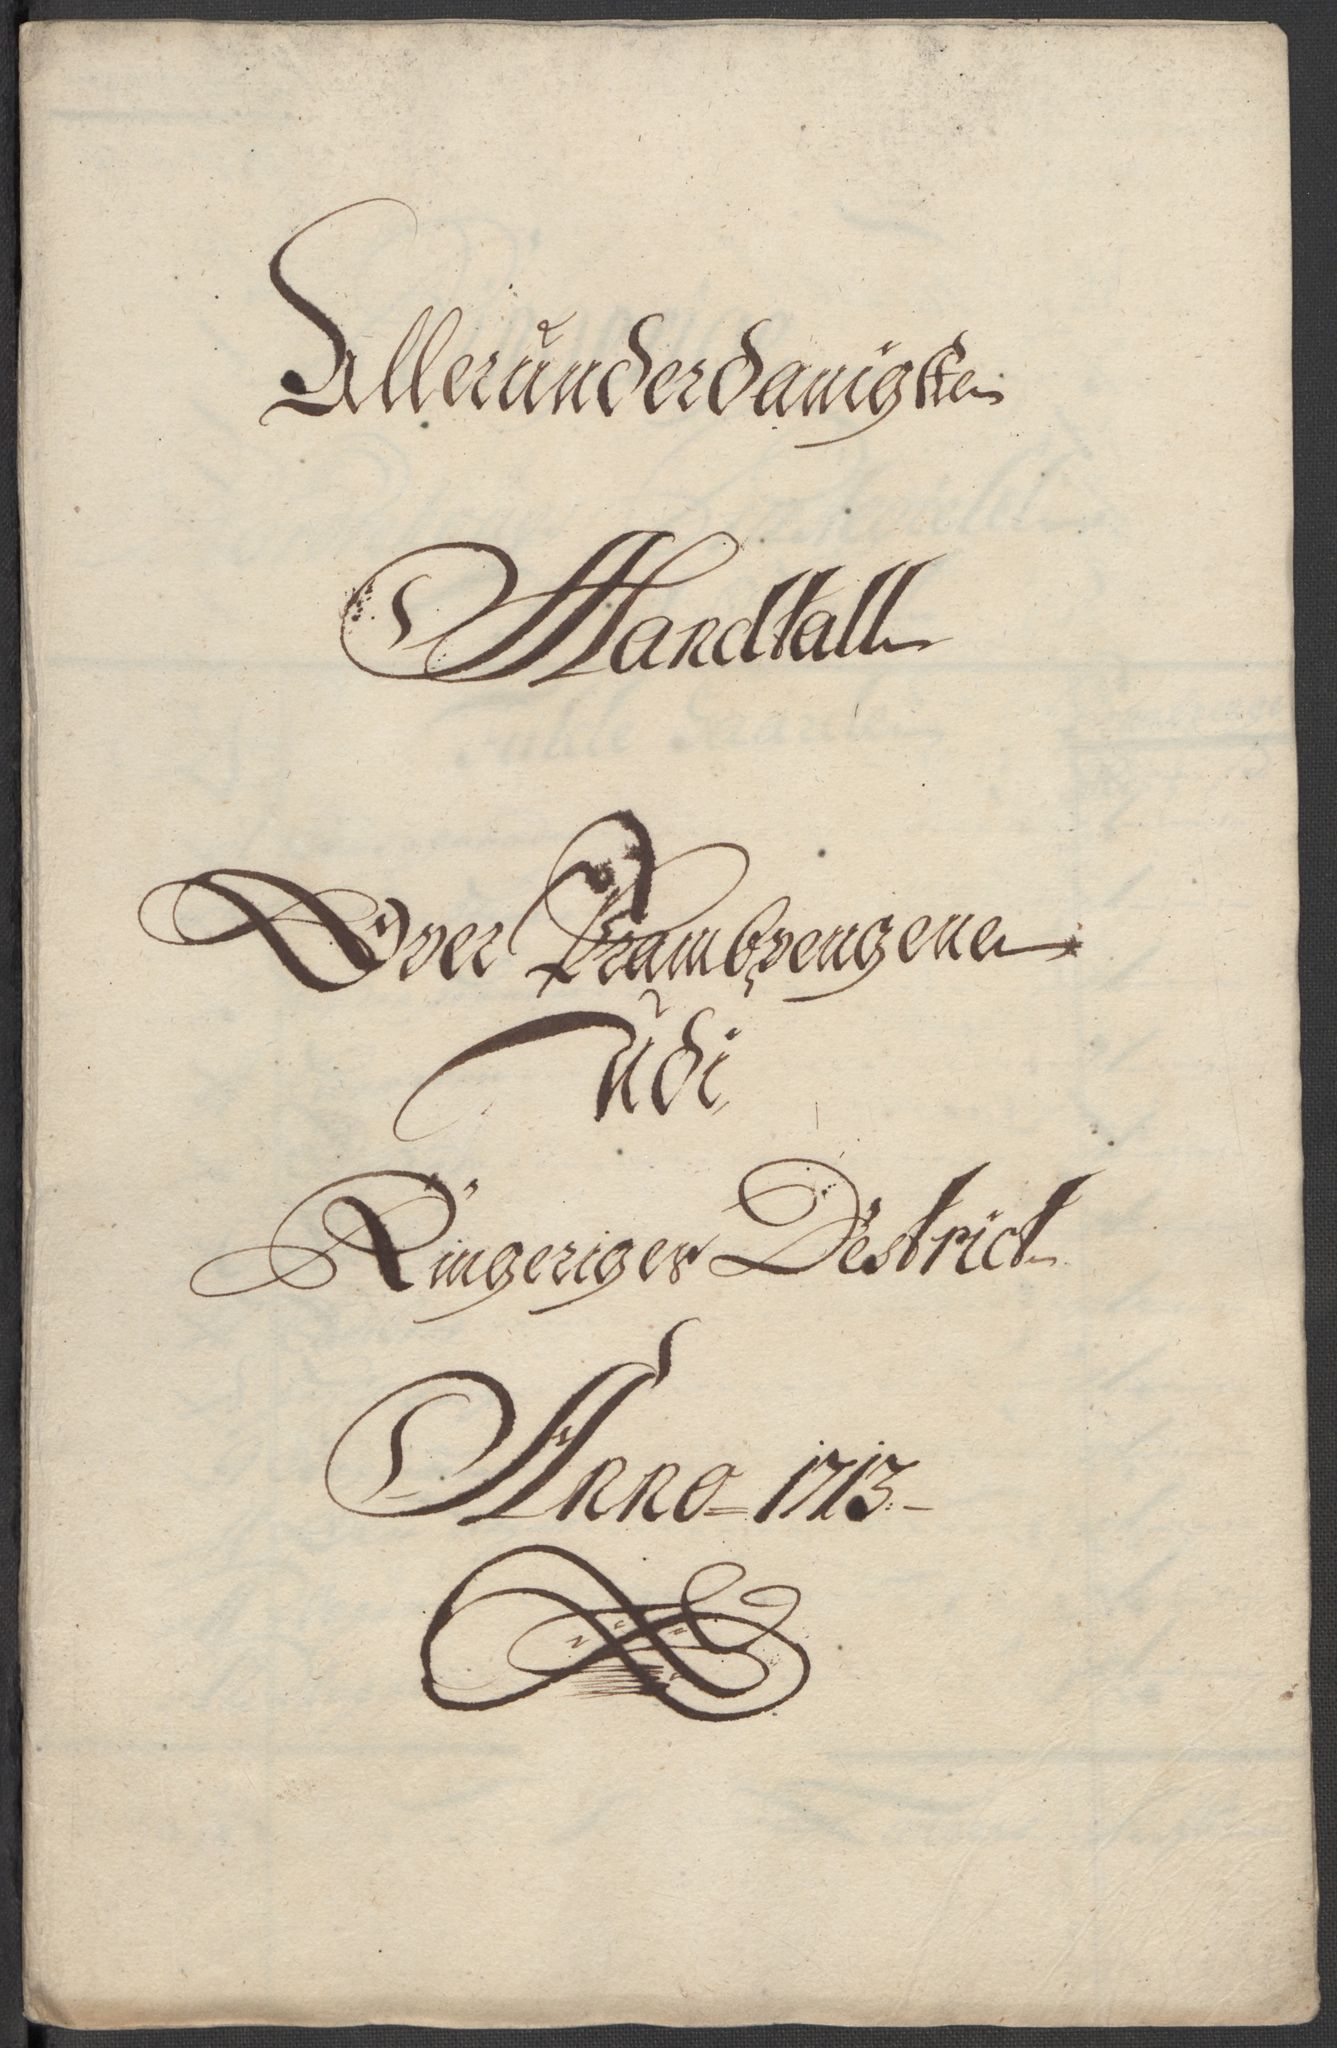 Allerunderdanigste
Mandtall
Over Qvambvengene
Udi
Ringeriges Destrict
Anno 1713